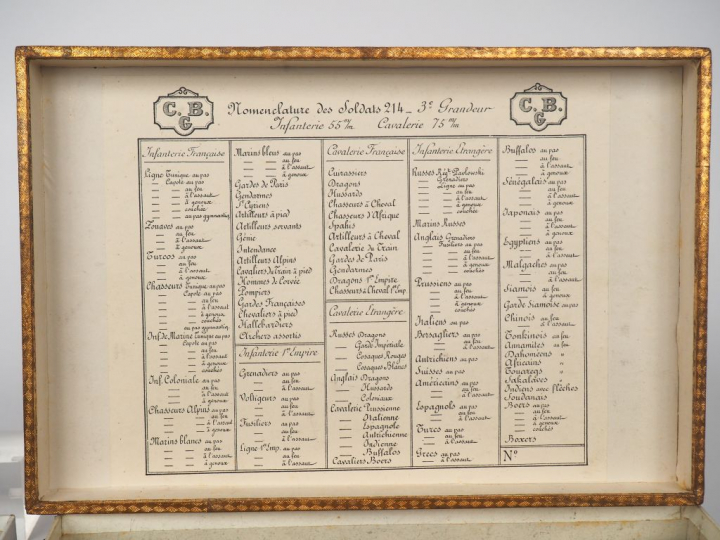 C.B.G
Nomenclature des Soldats 214 - 3e Grandeur
Infanterie 55 m/m Cavalerie 75 m/m
C.B.G
Infanterie Française
Ligne Tunique au pas
— Capote au pas
— — au feu
— — à l'assaut
— — à genoux
— — couchés
— — au pas gymnastiq
Zouaves au pas
— au feu
— à l'assaut
— à genoux
Turcos au pas
— au feu
— à l'assaut
— à genoux
Chasseurs Tunique au pas
— Capote au pas
— — au feu
— — à l'assaut
— — à genoux
— — couchés
— — au pas gymnastiq
Inf. de Marine Tunique au pas
— Capote au pas
— — au feu
— — à l'assaut
— — à genoux
Inf. Coloniale au pas
— — au feu
— — à l'assaut
Chasseurs Alpins au pas
— — au feu
— — à l'assaut
— — à genoux
Marins blancs au pas
— — au feu
— — à l'assaut
— — à genoux
Marins bleus au pas
— — au feu
— — à l'assaut
— — à genoux
Gardes de Paris
Gendarmes
St Cyriens
Artilleurs à pied
Artilleurs servants
Génie
Intendance
Artilleurs Alpins
Cavaliers du Train à pied
Hommes de Corvée
Pompiers
Gardes Françaises
Chevaliers à pied
Hallebardiers
Archers assortis
Infanterie 1er Empire
Grenadiers au pas
— au feu
— à l'assaut
Voltigeurs au pas
— au feu
— à l'assaut
Fusiliers au pas
— au feu
— à l'assaut
Ligne 1er Emp. au pas
— — au feu
— — à l'assaut
Cavalerie Française
Cuirassiers
Dragons
Hussards
Chasseurs à Cheval
Chasseurs d'Afrique
Spahis
Artilleurs à Cheval
Cavalerie du Train
Gardes de Paris
Gendarmes
Dragons 1er Empire
Chasseurs à Cheval 1er Emp
Cavalerie Etrangère
Russes Dragons
— Garde Impériale
— Cosaques Rouges
— Cosaques Blancs
Anglais Dragons
— Hussards
— Coloniaux
Cavalerie Prussienne
— Italienne
— Espagnole
— Autrichienne
— Indienne
— Buffalos
Cavaliers Boers
Infanterie Etrangère
Russes Rigt Pavlowski
— Grenadiers
— Ligne au pas
— — au feu
— — à l'assaut
— — à genoux
— — couchés
Marins Russes
Anglais Grenadiers
— Fusiliers au pas
— — au feu
— — à l'assaut
— — couchés
Prussiens au pas
— au feu
— à l'assaut
— à genoux
— couchés
Italiens au pas
Bersagliers au pas
— au feu
— à l'assaut
Autrichiens au pas
Suisses au pas
Américains au pas
— au feu
— à l'assaut
Espagnols au pas
— au feu
— à l'assaut
Turcs au pas
— au feu
— à l'assaut
Grecs au pas
— à l'assaut
Buffalos au pas
— au feu
— à l'assaut
— à genoux
Sénégalais au pas
— au feu
— à l'assaut
— à genoux
Japonais au pas
— au feu
— à l'assaut
Egyptiens au pas
— au feu
— à l'assaut
Malgaches au pas
— au feu
— à l'assaut
Siamois au feu
— à genoux
Garde Siamoise au pas
Chinois au feu
— à l'assaut
Tonkinois au feu
Annamites au feu
Dahoméens "
Africains "
Touaregs "
Sakalaves
Indiens avec flèches
Soudanais
Boers au pas
— au feu
— à l'assaut
— à genoux
— couchés
Boxers
No